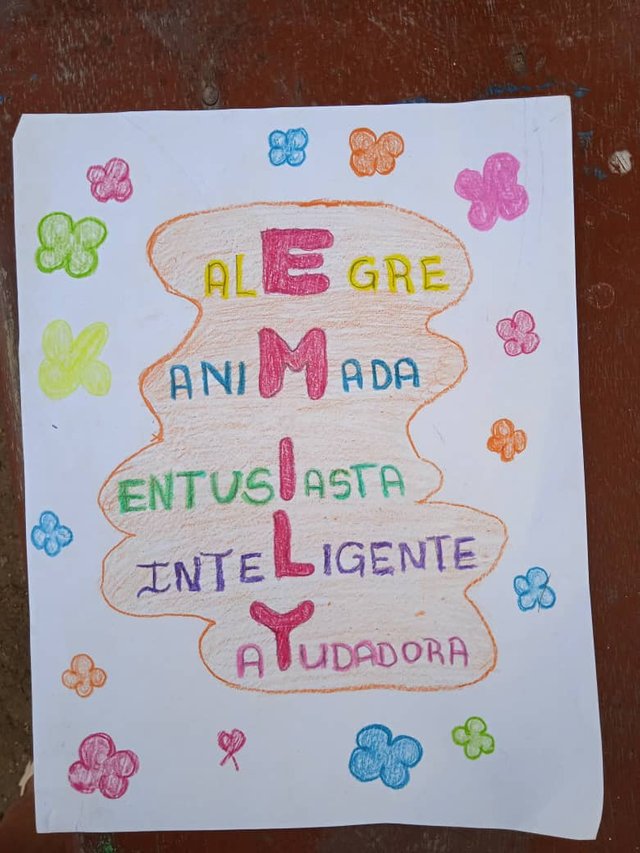 ALEGRE
ANIMADA
ENTUSIASTA
INTELIGENTE
AYUDADORA